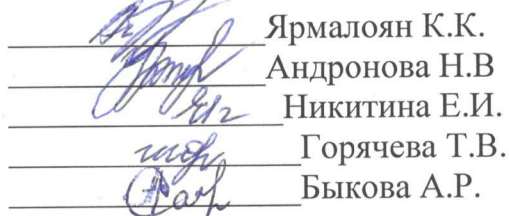 Ярмалоян К.К.
Андронова Н.В
Никитина Е.И.
Горячева Т.В.
Быкова А.Р.